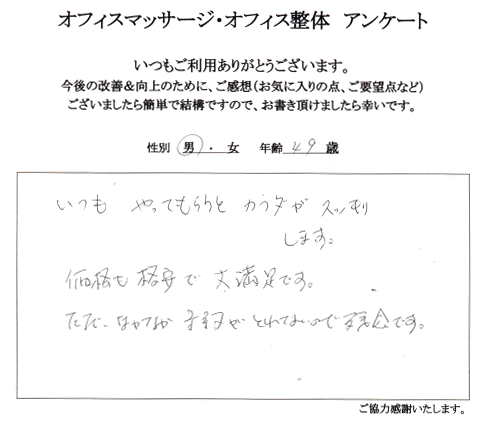 オフィスマッサージ・オフィス整体 アンケート
いつもご利用ありがとうございます。
今後の改善&向上のために、ご感想（お気に入りの点、ご要望点など）
ございましたら簡単で結構ですので、お書き頂けましたら幸いです。
性別 男・女 年齢 49 歳
いつも やってもらうと カラダが スッキリ
します。
価格も 格安で 大満足です。
ただ、なかなか 予約が とれないので 残念です。
ご協力感謝いたします。